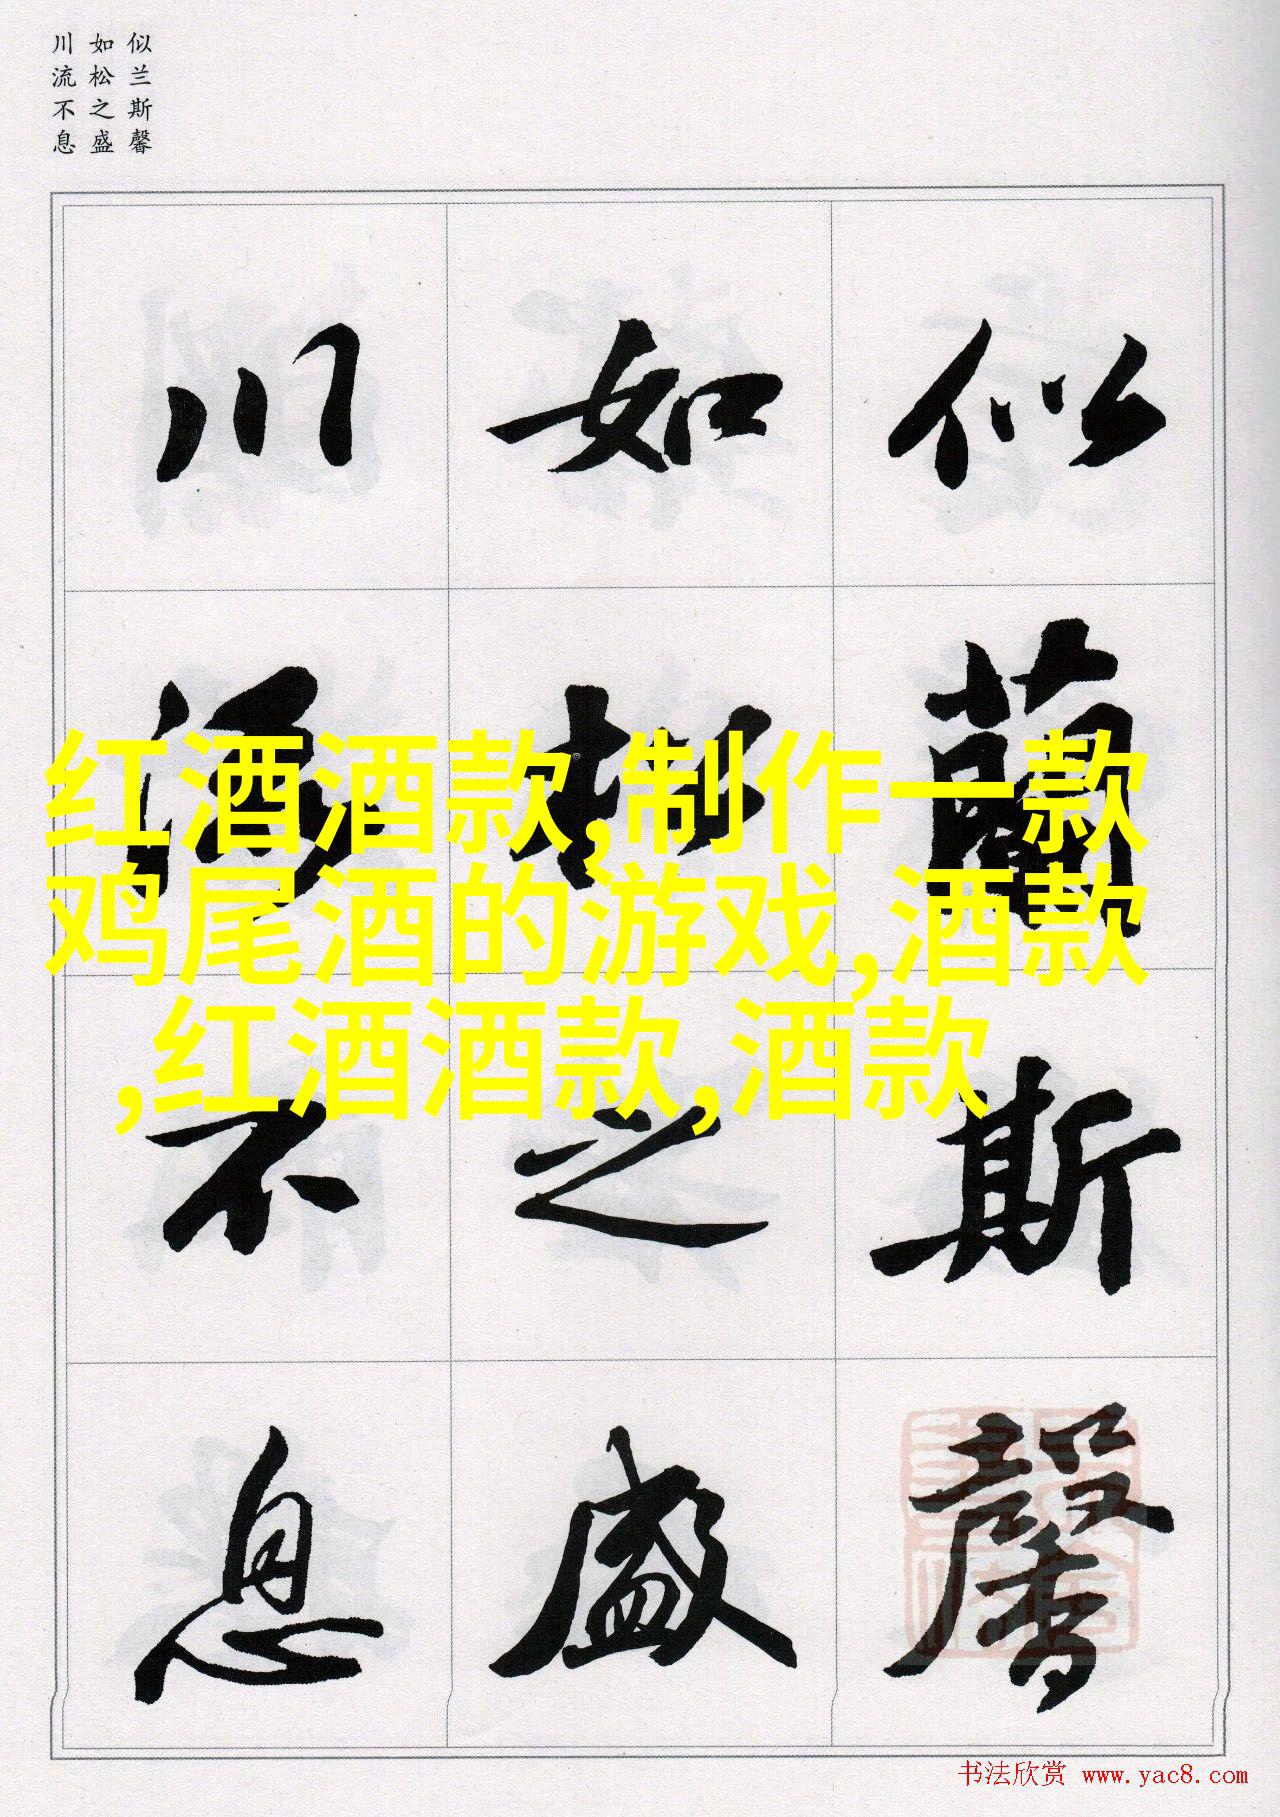 似兰斯馨
如松之盛
川流不息
似蘭斯馨
如松之盛
川流不息
红酒酒款,制作一款
鸡尾酒的游戏,酒款
,红酒酒款,酒款
书法欣赏 www.yac8.com